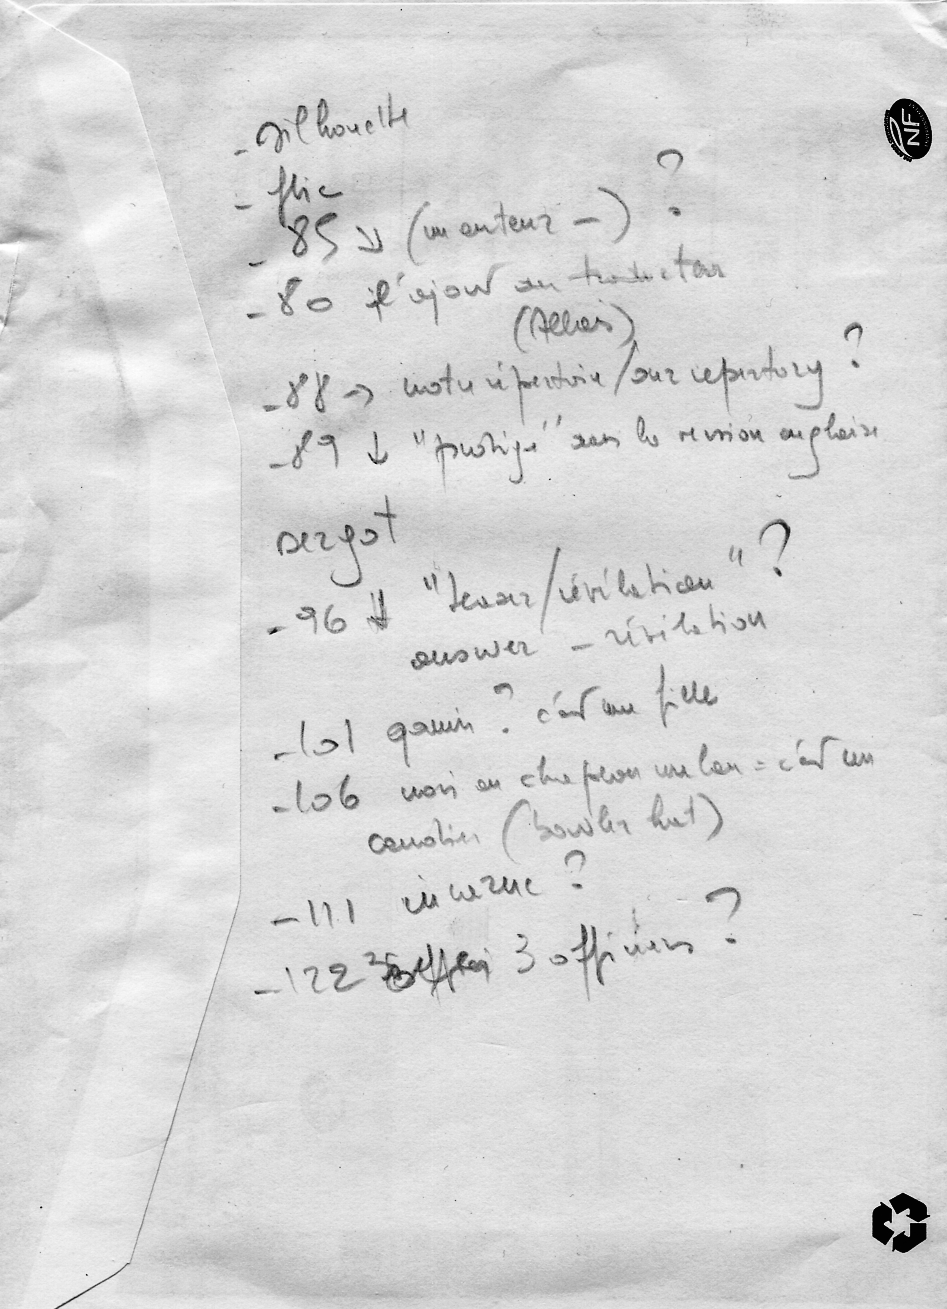 - silhouette
- flic
- 85 ↓ (menteur -) ?
- 80 du traducteur
(Allais)
- 88 → notre répertoire/our repertory ?
- 89 ↓ "protégé" dans la version anglaise
sergot
- 96 ↓ "teaser/révélation" ?
answer - révélation
- 101 gamin ? c'est une fille
- 106 melon = c'est un
canotier (bowler hat)
- 111 ?
- 122 3 officiers ?
NF